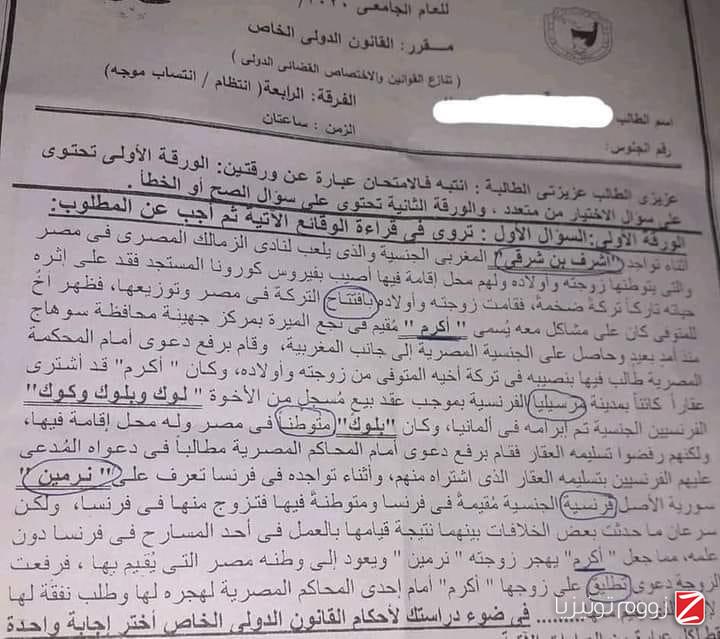 للعام الجامعى
مقرر: القانون الدولى الخاص
( تنازع القوانين والاختصاص القضائى الدولى )
الفرقة: الرابعة( انتظام / انتساب موجه)
اسم الطالب
الزمن : ساعتان
رقم الجلوس:
عزيزى الطالب عزيزتى الطالبة : انتبه فالامتحان عبارة عن ورقتين: الورقة الأولى تحتوى
على سؤال الاختيار من متعدد ، والورقة الثانية تحتوى على سؤال الصح أو الخطأ .
الورقة الأولى:السؤال الأول : تروى فى قراءة الوقائع الآتية ثم أجب عن المطلوب:
أثناء تواجد "أشرف بن شرقى" المغربى الجنسية والذى يلعب لنادى الزمالك المصرى فى مصر
والتى يتوطنها زوجته وأولاده ولهم محل إقامة فيها أصيب بفيروس كورونا المستجد فقد على إثره
حياته تاركاً تركة ضخمة، فقامت زوجته وأولاده بافتتاح التركة فى مصر وتوزيعها، فظهر أخُ
للمتوفى كان على مشاكل معه يُسمى " أكرم " مُقيم فى نجع الميرة بمركز جهينة محافظة سوهاج
منذ أمدٍ بعيدٍ وحاصل على الجنسية المصرية إلى جانب المغربية، وقام برفع دعوى أمام المحكمة
المصرية طالب فيها بنصيبه فى تركة أخيه المتوفى من زوجته وأولاده، وكان " أكرم" قد أشترى
عقاراً كائناً بمدينة مرسيليا الفرنسية بموجب عقد بيع مُسجل من الأخوة " لوك وبلوك وكوك"
الفرنسيين الجنسية تم إبرامه فى ألمانيا، وكان "بلوك" متوطناً فى مصر وله محل إقامة فيها،
ولكنهم رفضوا تسليمه العقار فقام برفع دعوى أمام المحاكم المصرية مطالباً فى دعواه المُدعى
عليهم الفرنسيين بتسليمه العقار الذى اشتراه منهم، وأثناء تواجده فى فرنسا تعرف على " نرمين "
سورية الأصل فرنسية الجنسية مُقيمةً فى فرنسا ومتوطنةً فيها فتزوج منها فى فرنسا، ولكن
سرعان ما حدثت بعض الخلافات بينهما نتيجة قيامها بالعمل فى أحد المسارح فى فرنسا دون
علمه، مما جعل " أكرم" يهجر زوجته "نرمين " ويعود إلى وطنه مصر التى يُقيم بها ، فرفعت
الزوجة دعوى تطليق على زوجها "أكرم" أمام إحدى المحاكم المصرية لهجره لها وطلب نفقة لها
منها......... فى ضوء دراستك لأحكام القانون الدولى الخاص أختر إجابة واحدة
زووم تونيزيا